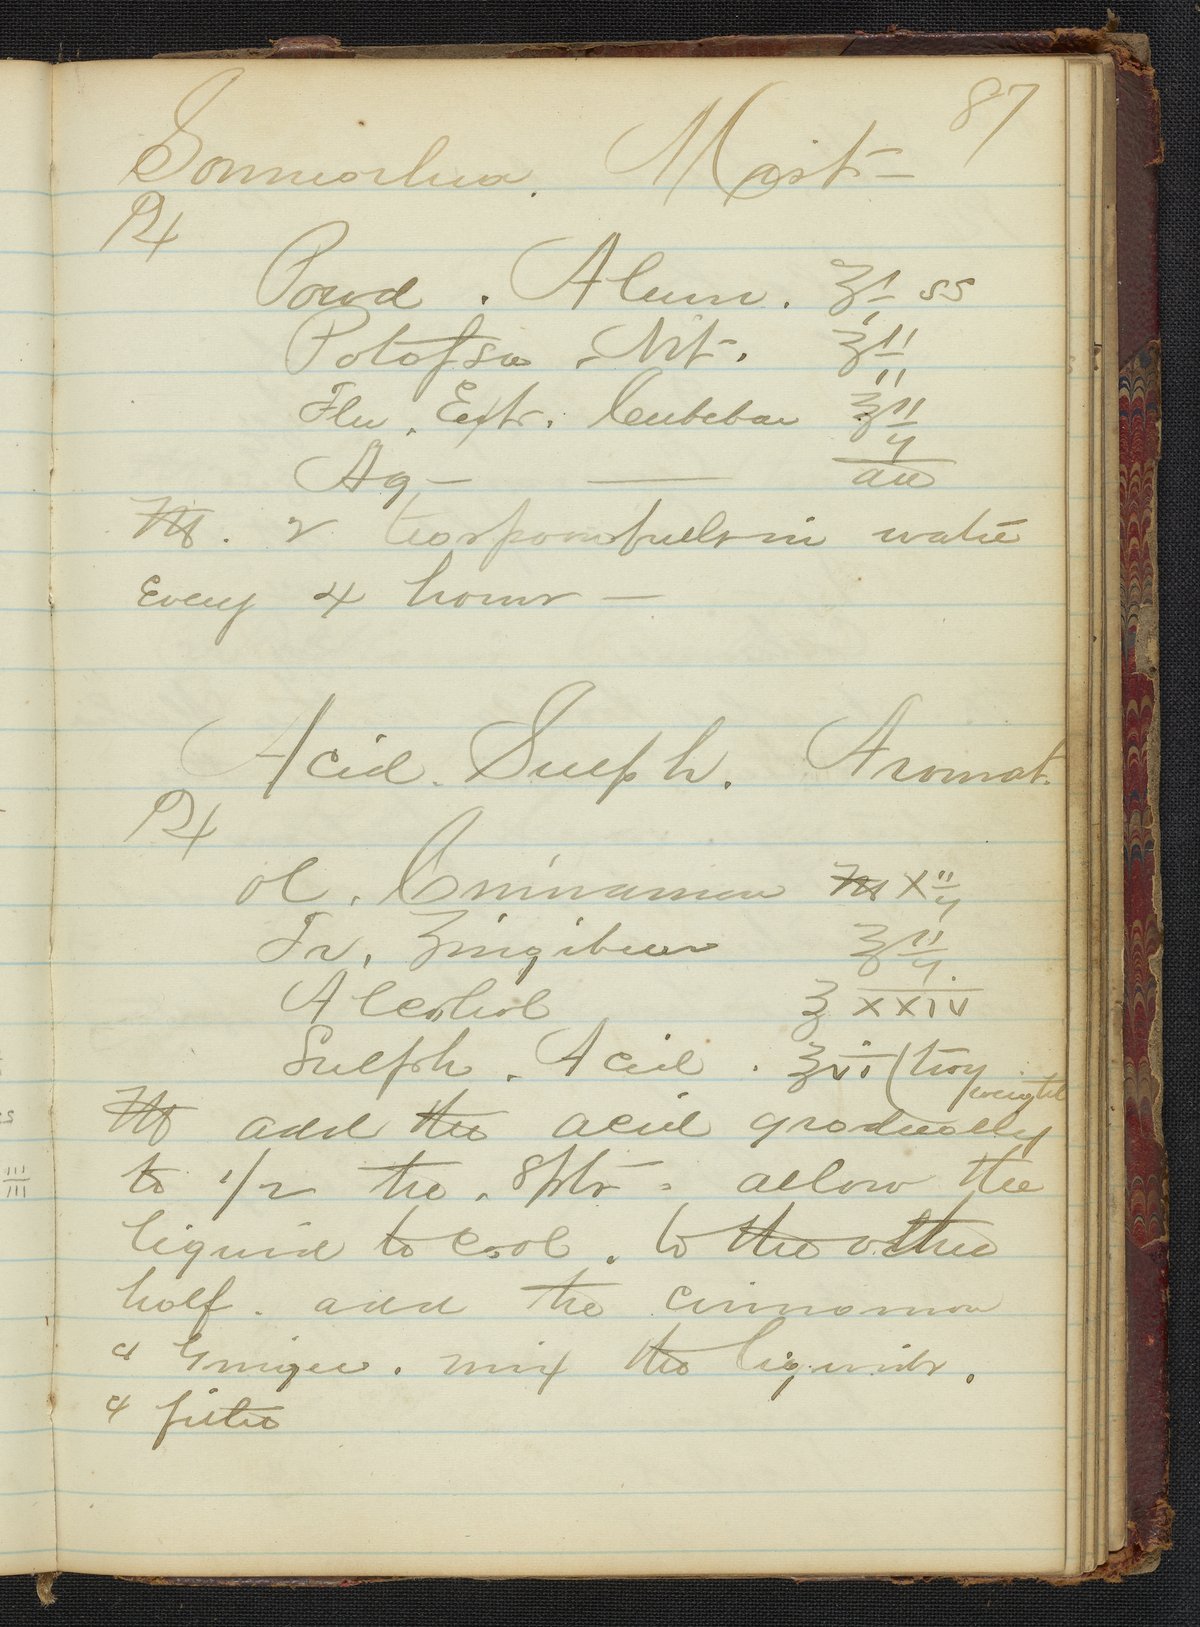 87
Gonnorhea. Mist—
℞
Powd. Alum. ʒi ss
Potassa Nit. ʒii
Flu. Extr. Cubebae ʒii
Aq — — ad
M. 2 teaspoonfuls in water
Every 4 hours —
Acid. Sulph. Aromat.
℞
Ol. Cinnamon ♏ xii
Tr. Zingiber ʒii
Alcohol ℥ xxiv
Sulph. Acid. ℥vi (troy weight
M add the acid gradually
to 1/2 the. Spts - allow the
liquid to cool. to the other
half. add the cinnamon
& Ginger. mix the liquids.
& filter